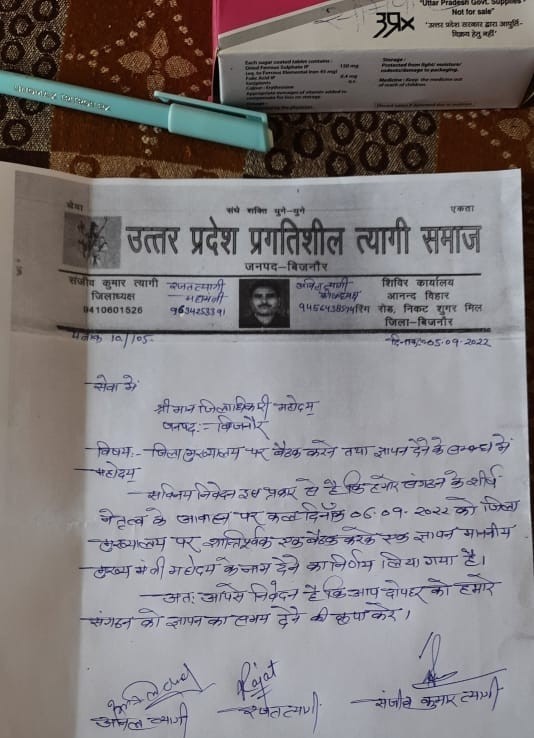 "Uttar Pradesh Govt. Supplies
Not for sale"
"उत्तर प्रदेश सरकार द्वारा आपूर्ति-
विक्रय हेतु नहीं"
Each sugar coated tablet contains:
Dried Ferrous Sulphate IP
Folic Acid IP
Storage:
Protected from light/ moisture/
Medicine: Keep the medicine out
of reach of children.
सेवा
संघे शक्ति युगे-युगे
एकता
उत्तर प्रदेश प्रगतिशील त्यागी समाज
जनपद-बिजनौर
संजीव कुमार त्यागी
जिलाध्यक्ष
9410601526
रजत त्यागी
महामंत्री
9634253391
शिविर कार्यालय
आनन्द विहार
रिंग रोड, निकट शुगर मिल
जिला-बिजनौर
दिनांक 05.09.2022
सेवा में
श्रीमान जिलाधिकारी महोदय
जनपद :- बिजनौर
विषय:- जिला मुख्यालय पर बैठक करने तथा ज्ञापन देने के सम्बन्ध में
महोदय
सविनय निवेदन इस प्रकार से है कि हमारे संगठन के शीर्ष
नेतृत्व के आवाहन पर कल दिनाँक 06.09.2022 को जिला
मुख्यालय पर शांतिपूर्वक एक बैठक करके एक ज्ञापन माननीय
मुख्य मंत्री महोदय के नाम देने का निर्णय लिया गया है।
अतः आपसे निवेदन है कि आप दोपहर को हमारे
संगठन को ज्ञापन का समय देने की कृपा करे।
Rajat
त्यागी
रजत त्यागी
संजीव कुमार त्यागी